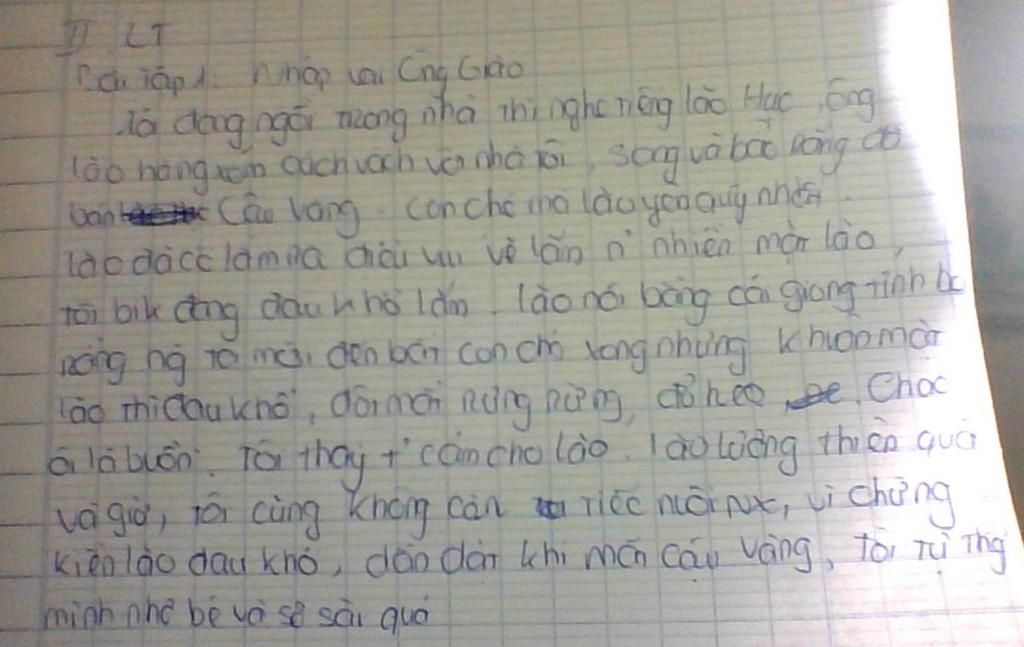 II LT
Bài tập 1. Nhập vai ông Giáo
Tôi đang ngồi trong nhà thì nghe tiếng lão Hạc, ông
lão hàng xóm cách vách với nhà tôi, sang và báo rằng đã
bán cậu Vàng. Con chó mà lão yêu quý nhất.
lão làm ra vui vẻ nhiên mặt lão,
tôi bik đang đau khổ lắm. lão nói bằng cái giọng
bán con chó xong nhưng khuôn mặt
lão thì đau khổ, đôi mắt rưng rưng, đỏ hoe. Chắc
là buồn. Tôi thấy t' cảm cho lão. lão lương thiện quá
và giờ, tôi cũng không còn tiếc nuối nx, vì chứng
kiến lão đau khổ, dằn dặt khi mất cậu vàng, tôi tự thấy
mình nhỏ bé và sai quá